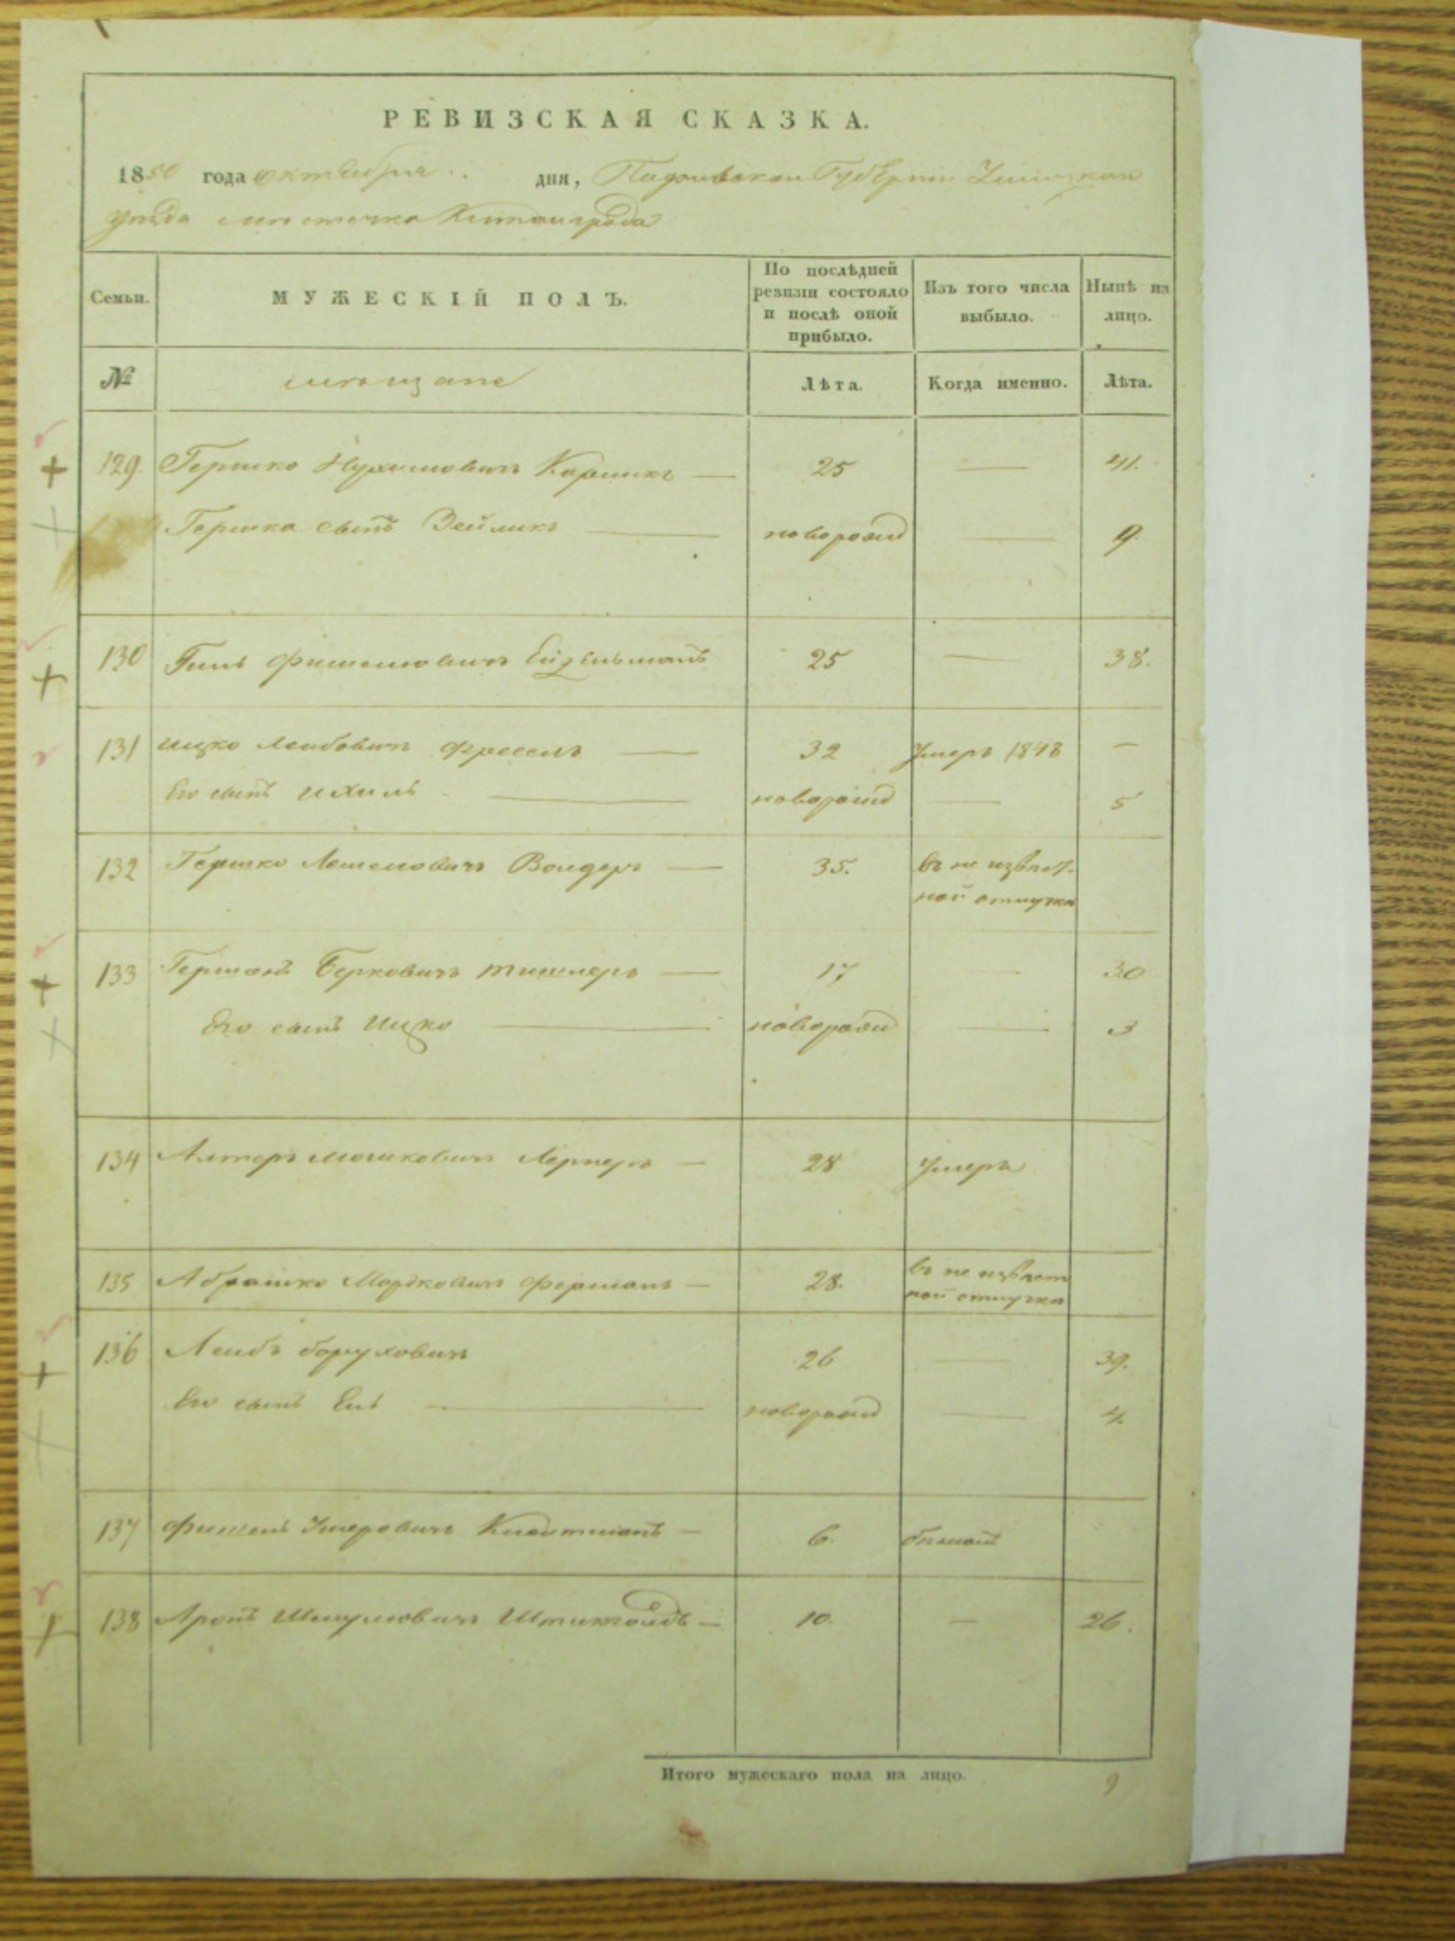 РЕВИЗСКАЯ СКАЗКА.
1850 года октября дня, Подольской Губернии Ушицкого
уезда местечка Китайгорода
Семьи. МУЖЕСКІЙ ПОЛЪ. По послѣдней ревизіи состояло и послѣ оной прибыло. Изъ того числа выбыло. Нынѣ на лицо.
№ мещане Лѣта. Когда именно. Лѣта.
129. Гершко Нухимовичъ — 25 — 41.
Гершка сынъ Зейликъ — новорожд — 9.
130 Фишелевичъ 25 — 38.
131 Ицко Лейбовичъ — 32 умеръ 1848 —
Его сынъ Ихиль — новорожд — 5
132 Гершко — 35. въ не извѣст-
ной отлучке
133 Беркович — 17 — 30
Его сынъ Ицко — новорожд — 3
134 Алтеръ Мошковичъ Лернеръ — 28 умеръ
135 Абрашко Мордковичъ Ферманъ — 28. въ не извѣст
ной отлучке
136 Лейбъ Борухович 26 — 39.
Его сынъ — новорожд — 4.
137 Фишель — 6.
138 Аронъ Шмулевичъ — 10. — 26.
Итого мужескаго пола на лицо. 9